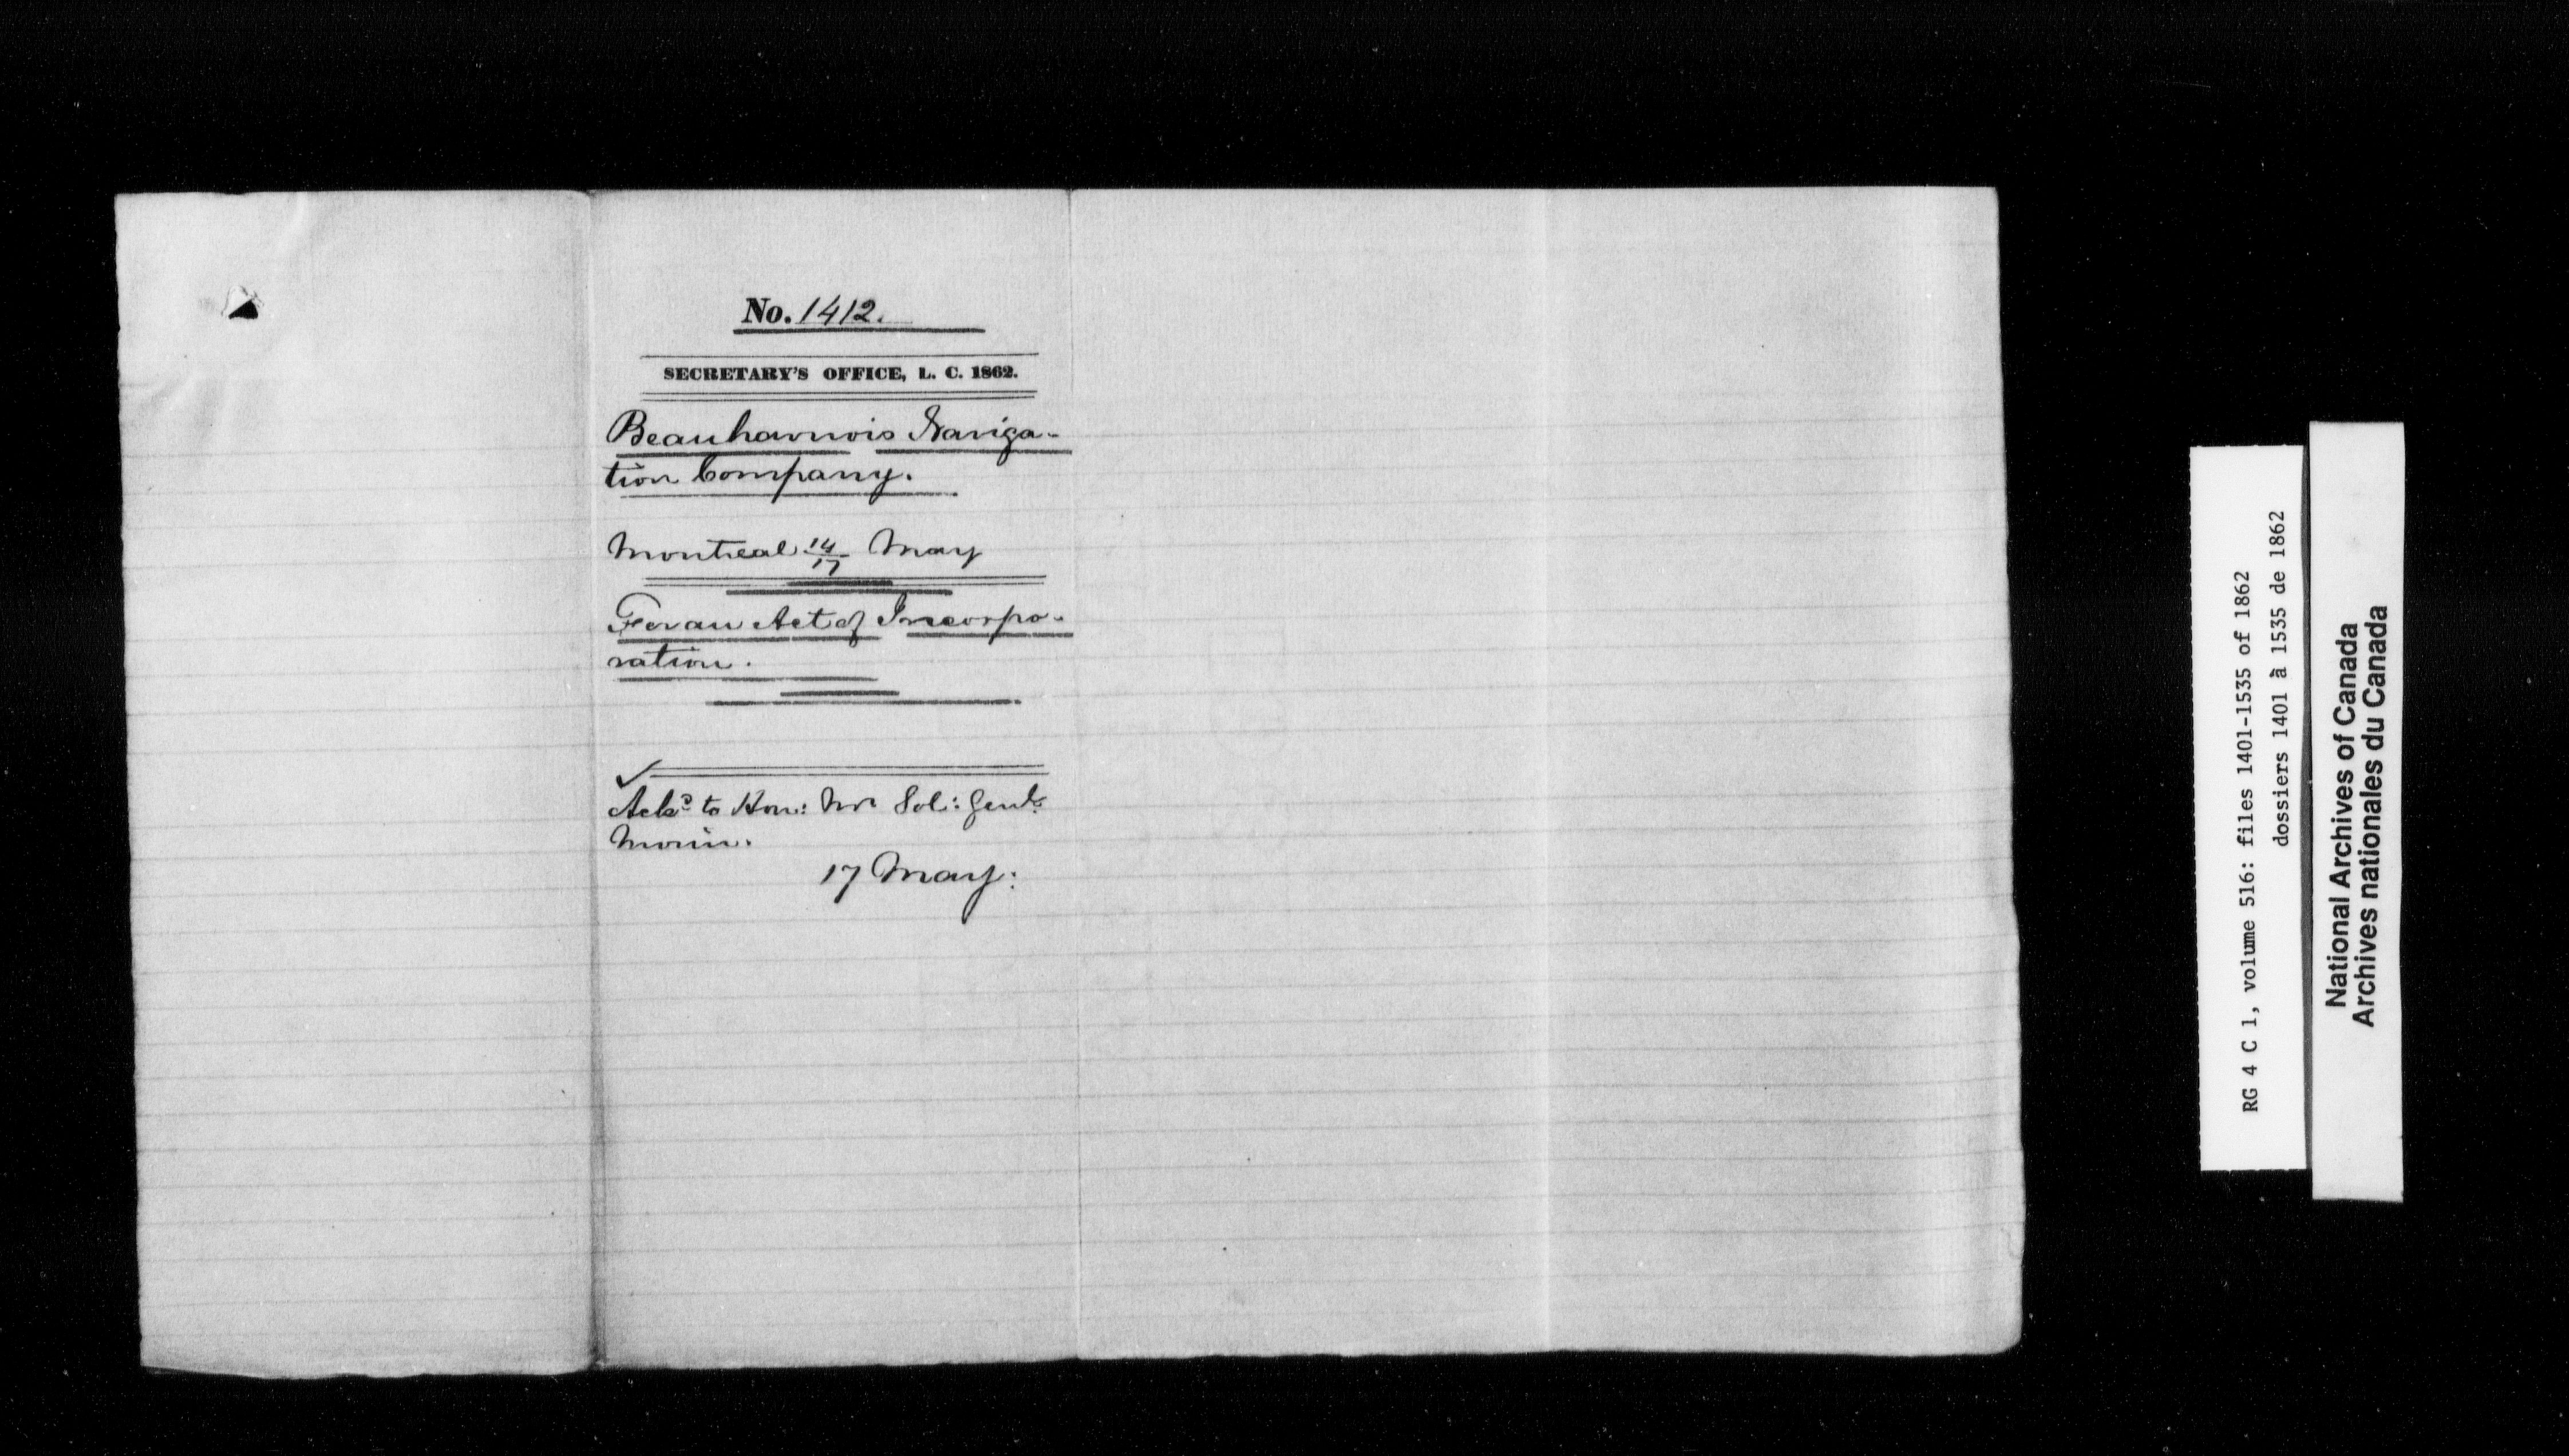 No. 1412.
SECRETARY'S OFFICE, L. C. 1862.
Beauharnois Naviga-
tion Company.
Montreal 14/17 May
For an Act of Incorpo-
ration.
✓
Ackd to Hon: Mr Sol: Genl
Morin.
17 May:
RG 4 C 1, volume 516: files 1401-1535 of 1862
dossiers 1401 à 1535 de 1862
National Archives of Canada
Archives nationales du Canada